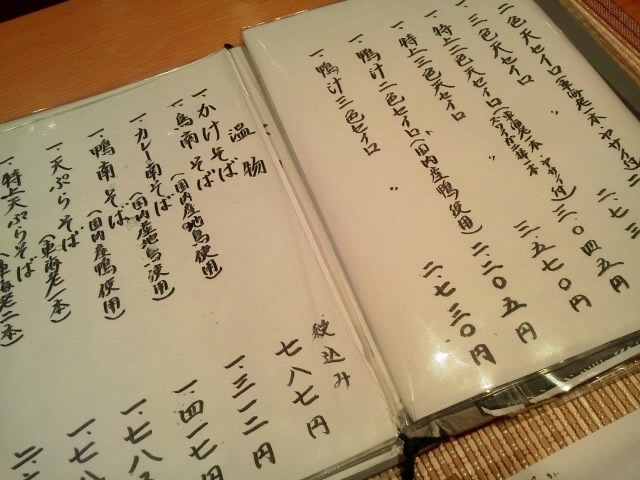 二色天セイロ(車海老一本・ヤサイ付) 二.七
一、三色天セイロ 〃 三
一、特上二色天セイロ 三.〇四五円
一、特上三色天セイロ 〃 三.五七〇円
一、鴨汁二色セイロ(国内産鴨使用) 二.二〇五円
一、鴨汁三色セイロ 〃 二.七三〇円
温物 税込み
一、かけそば 七八七円
一、鳥南そば(国内産地鳥使用) 一.三一二円
一、カレー南そば(国内産地鳥使用) 一.四一七円
一、鴨南そば(国内産鴨使用) 一.七八
一、天ぷらそば(車海老一本) 一.七八
一、特上天ぷらそば(車海老二本) 二.